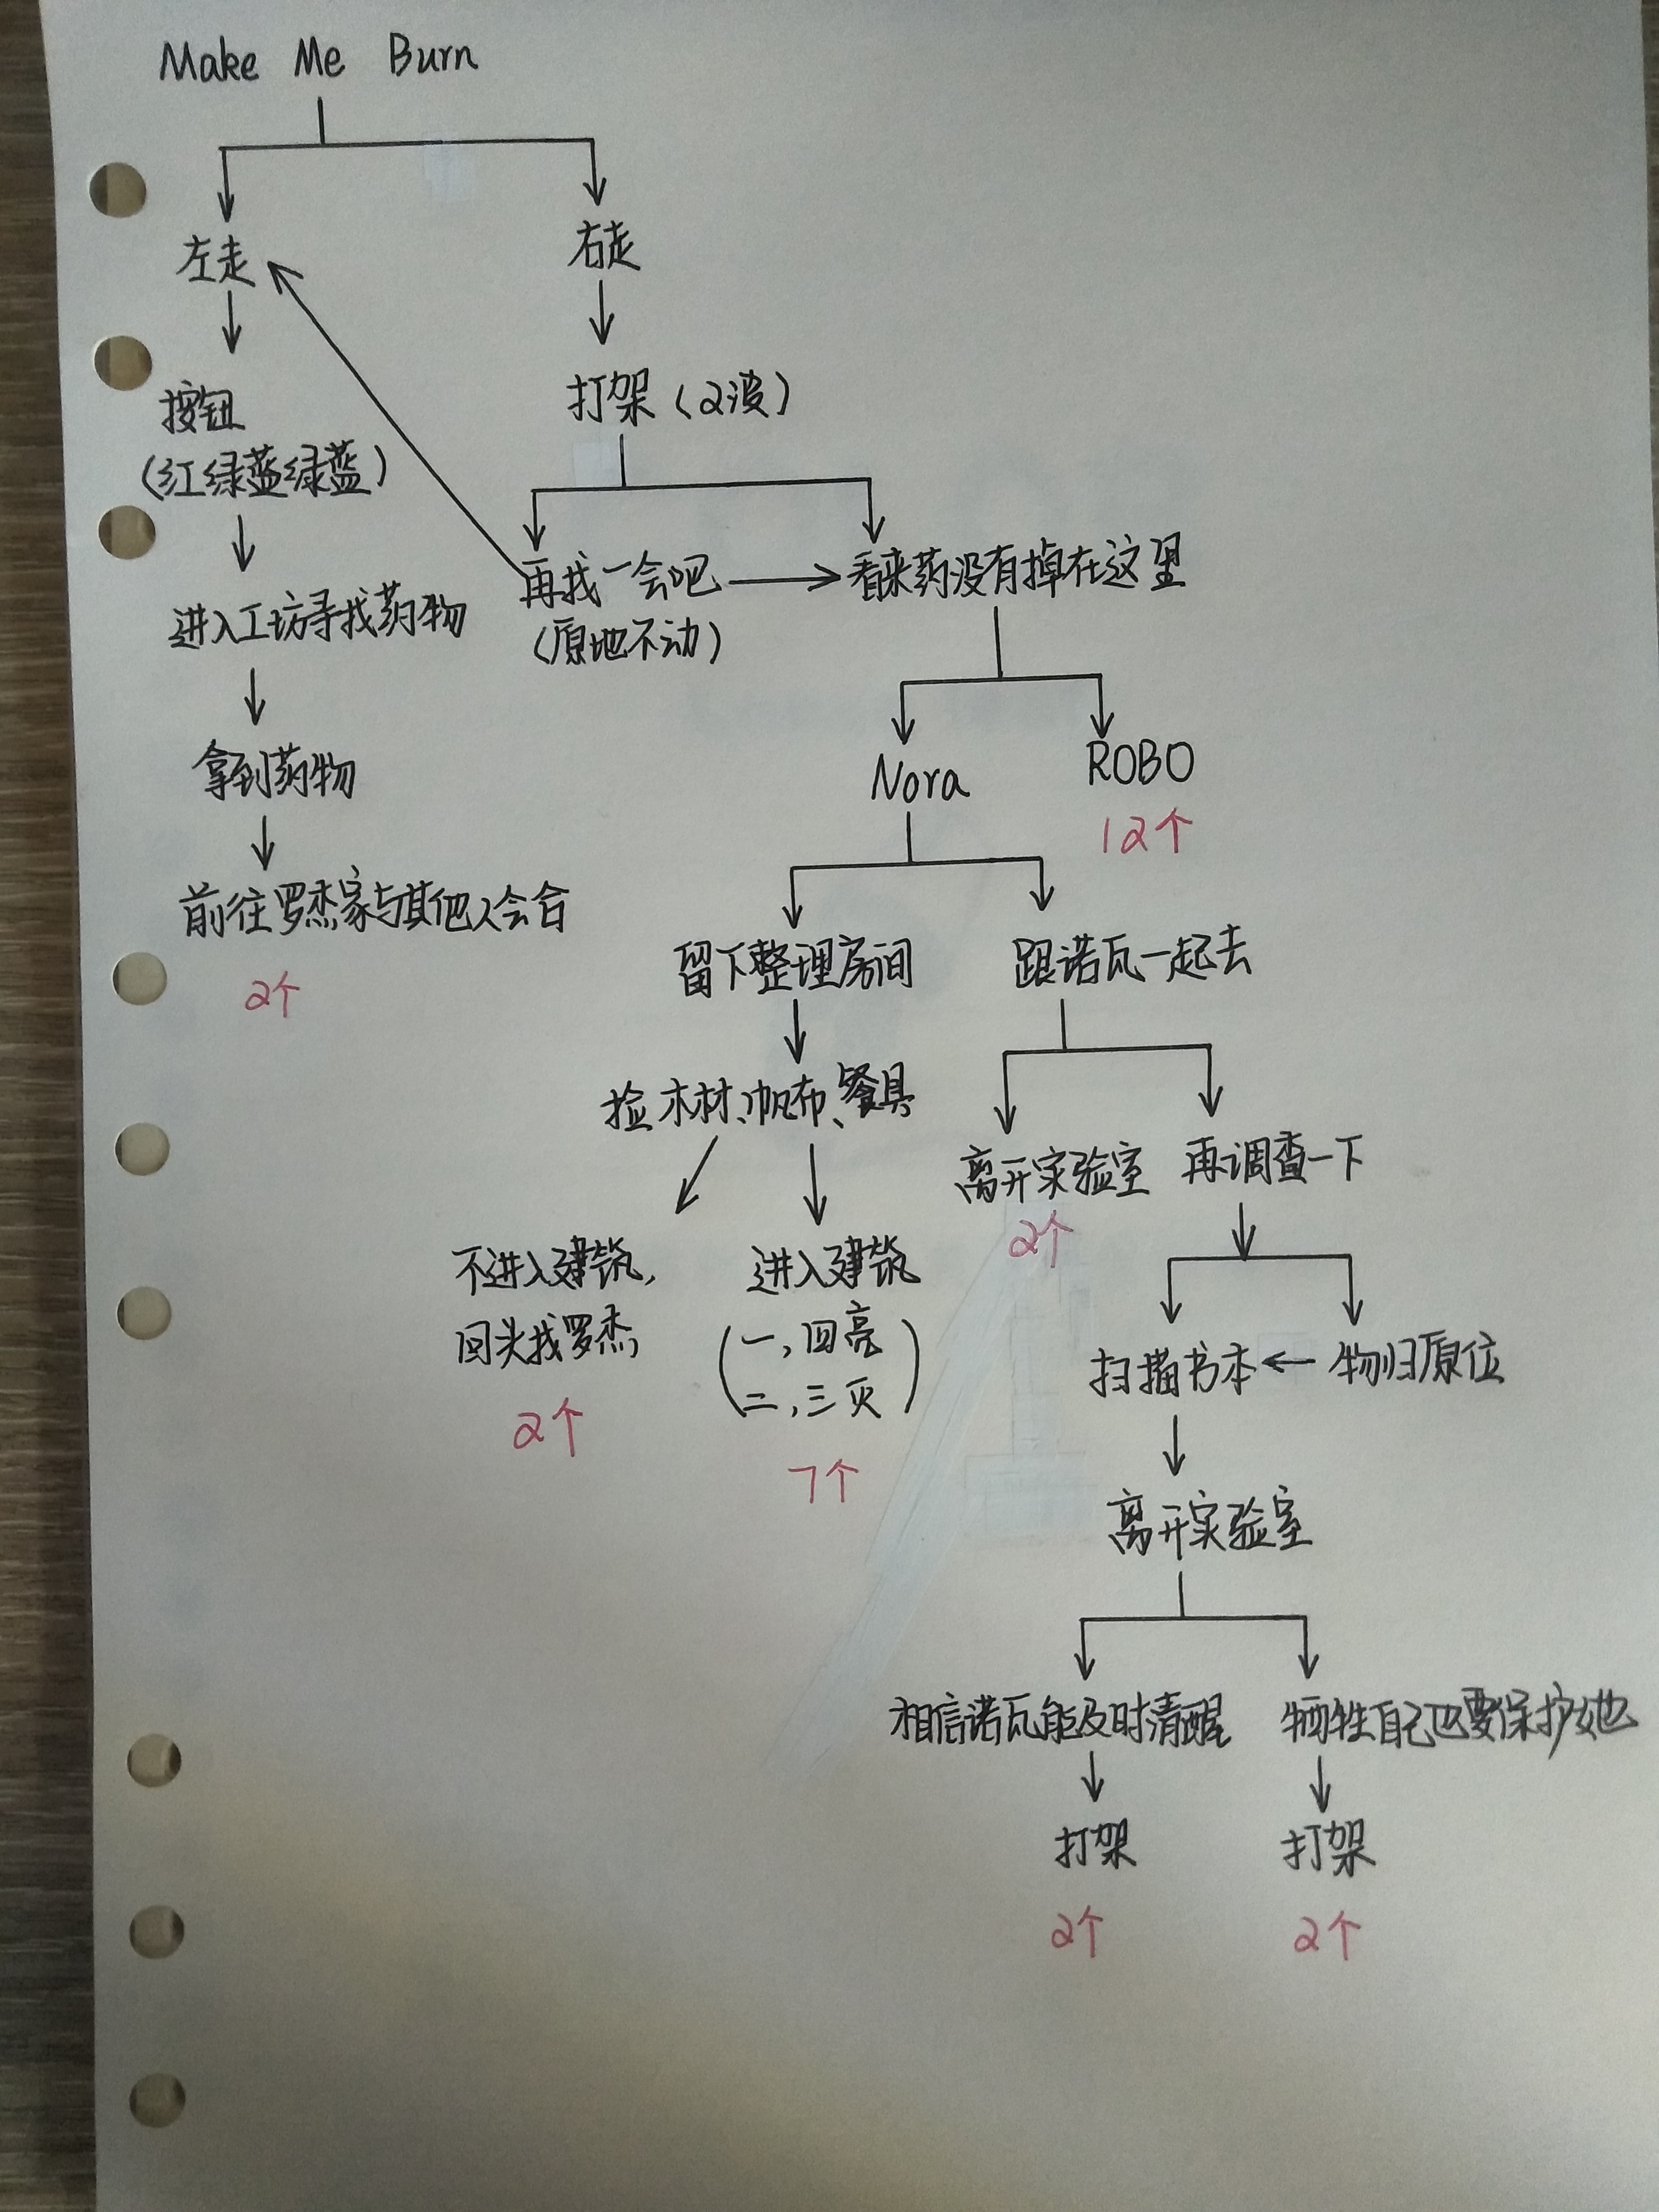 Make Me Burn
左走
右走
按钮
(红绿蓝绿蓝)
打架(2波)
进入工坊寻找药物
再找一会吧
(原地不动)
看来药没有掉在这里
拿到药物
Nora
ROBO
12个
前往罗杰家与其他人会合
2个
留下整理房间
跟诺瓦一起去
捡木材、帆布、餐具
离开实验室
2个
再调查一下
不进入建筑,
回头找罗杰
2个
进入建筑
(一,四亮
二,三灭)
7个
扫描书本
物归原位
离开实验室
相信诺瓦能及时清醒
牺牲自己也要保护她
打架
打架
2个
2个